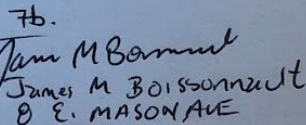 7b.
James M Boissonnault
8 E. MASON AVE